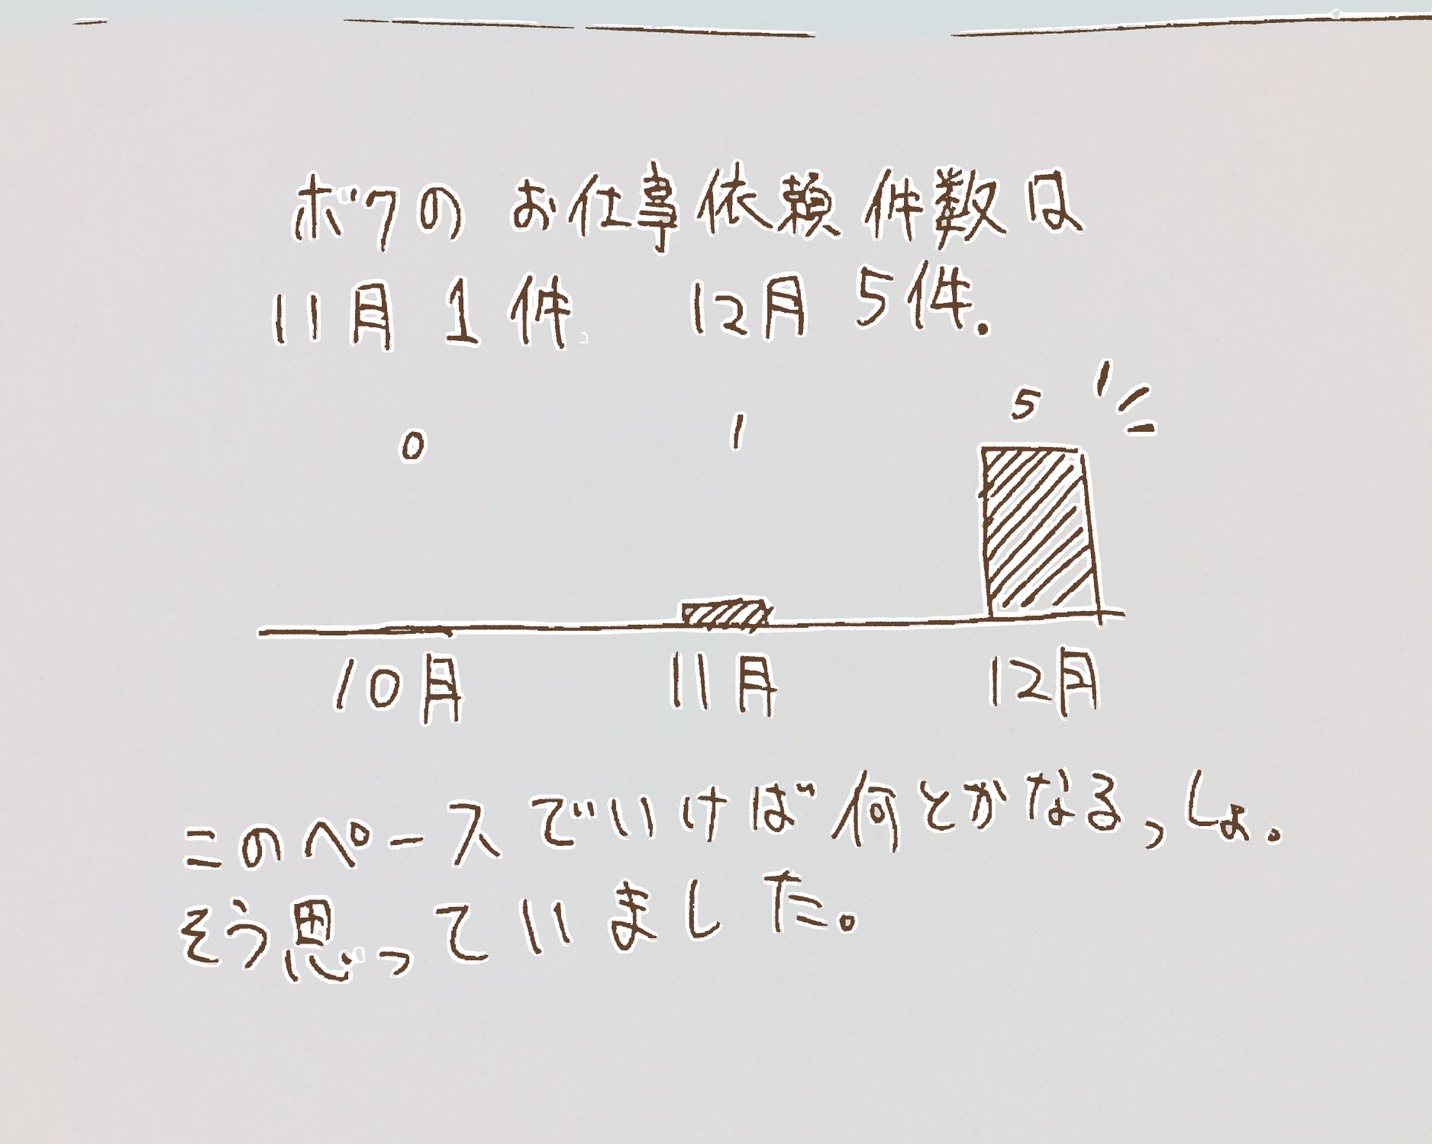 ボクの お仕事依頼 件数は
11月 1件. 12月 5件.
0 1 5
10月 11月 12月
このペースでいけば何とかなるっしょ。
そう思っていました。